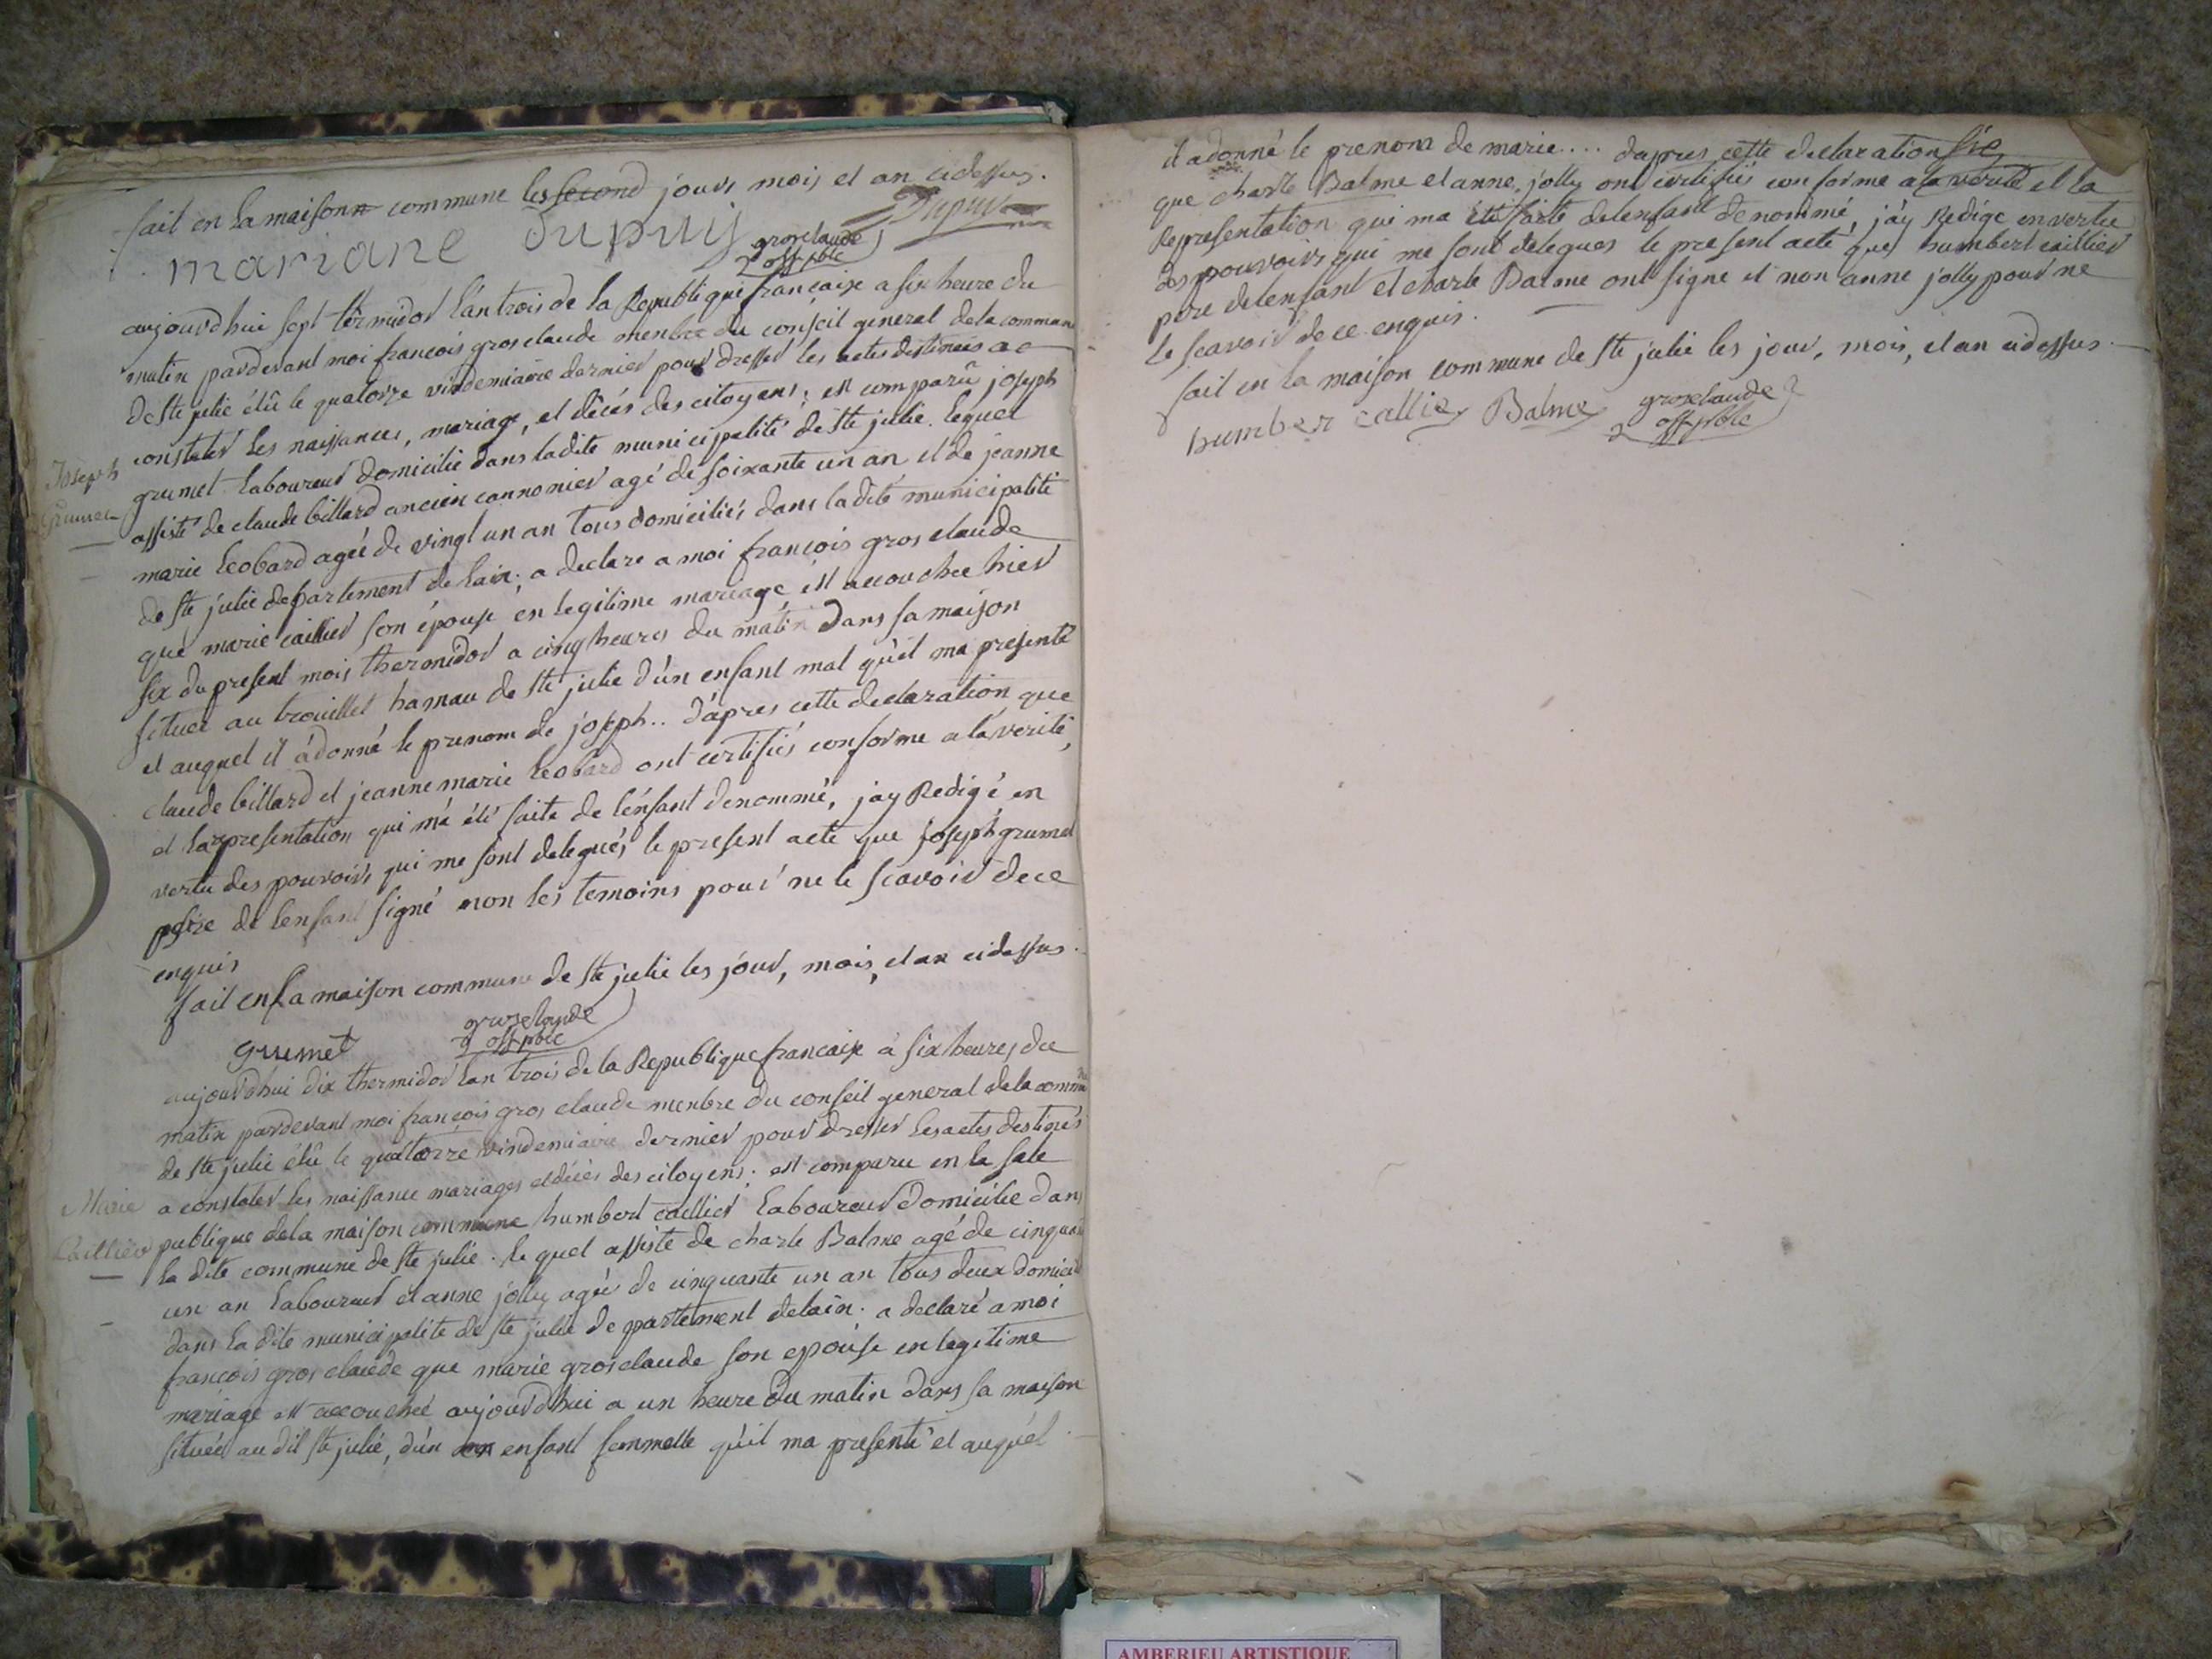 fait en la maison commune les second jours mois et an cidessus.
mariane dupuij
Dupuy
grosclaude
off pblc
aujourdhui sept termidor lan trois de la Republique françaix a six heure du
matin pardevant moi francois grosclaude menbre du conseil general de la commune
de ste julie élû le quatorze vindemiaire dernier pour dresser les actes destinées a
constater les naissances, mariage, et décés des citoyens; est comparû joseph
Joseph
grumet laboureur domicilié dans ladite municipalité de ste julie. lequel
Grumet
assisté de claude billard ancien cannonier agé de soixante un an et de jeanne
marie Leobard agée de vingt un an tous domiciliés dans la dité municipalité
de ste julie département de lain; a declare a moi francois gros claude
que marie caillier son épouse en legitime mariage est accouchee hier
six du present mois thermidor a cinq heures du matin dans sa maison
située au trouillet hamau de ste julie d'un enfant mal qu'il ma presenté
et auquel il a donné le prenom de joseph.. d'apres cette declaration que
claude billard et jeanne marie Leobard ont certifiés conforme a la verité,
et la representation qui má été faite de lénfant denommé, jay Redigé en
vertu des pouvoirs qui me sont delegués le present acte que joseph grumet
pere de lenfant signé non les temoins pour ne le scavoir de ce
enquis
fait en la maison commune de ste julie les jour, mois, et an cidessus.
grumet
grosclaude
off pblc
aujourdhui dix thermidor lan trois de la Republique francaix à six heures du
matin pardevant moi françois gros claude menbre du conseil general de la commune
de ste julie élû le quatorze vindemiaire dernier pour dresser les actes destinés
a constater les naissance mariages et décès des citoyens; est comparu en la sale
Marie
publique de la maison commune humbert caillier laboureur domicilie dans
Caillier
la dite commune de ste julie. le quel assiste de charle Balme agé de cinquante
un an laboureur et anne jolly agée de cinquante un an tous deux domicil
dans la dite municipalite de ste julie departement delain. a declaré a moi
françois gros claude que marie grosclaude son epouse en legitime
mariage est accouchée aujourdhui a un heure du matin dans sa maison
située au dit ste julie, dún enfant femmelle qu'il ma presenté et auquél
il a donné le prenom de marie.... dapres cette declaration
que charle Balme et anne jolly ont certifiés conforme a la verité et la
Representation qui ma été faite delenfant denommé, j'ay Redige en vertu
des pouvoirs qui me sont delegues le present acte que humbert caillier
pere delenfant et charle Balme ont signe et non anne jolly pour ne
Le scavoir de ce enquis.
fait en la maison commune de ste julie les jour, mois, et an cidessus.
humber callier Balme grosclaude
off pblc
AMBERIEU ARTISTIQUE